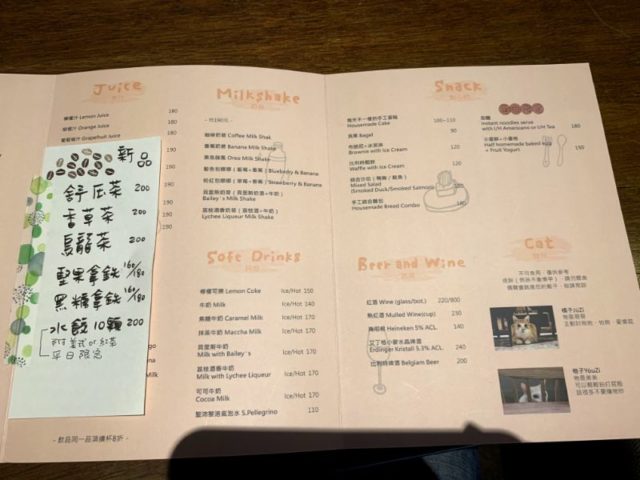 Juice
檸檬汁 Lemon Juice 180
柳橙汁 Orange Juice 180
葡萄柚汁 Grapefruit Juice 180
新品
舒瓜茶 200
香草茶 200
烏龍茶 200
堅果拿鐵 160/180
黑糖拿鐵 160/180
水餃10顆 200
附美式or紅茶
平日限定
- 飲品同一品項續杯8折 -
Milkshake
奶昔
- 均190元 -
咖啡奶昔 Coffee Milk Shak
香蕉奶昔 Banana Milk Shake
Oreo Milk Shake
Blueberry & Banana
Strawberry & Banana
貝里斯奶昔 (貝里斯奶酒+牛奶)
Bailey's Milk Shake
荔枝酒香奶昔 (荔枝酒+牛奶)
Lychee Liqueur Milk Shake
Soft Drinks
檸檬可樂 Lemon Coke Ice/Hot 150
牛奶 Milk Ice/Hot 140
焦糖牛奶 Caramel Milk Ice/Hot 170
抹茶牛奶 Maccha Milk Ice/Hot 170
貝里斯牛奶
Milk with Bailey's Ice/Hot 170
荔枝酒香牛奶
Milk with Lychee Liqueur Ice/Hot 170
可可牛奶
Cocoa Milk Ice/Hot 170
S.Pellegrino 110
Snack
每天不一樣的手工蛋糕 100~110
Housemade Cake
貝果 Bagel 90
布朗尼+冰淇淋 120
Brownie with Ice Cream
比利時鬆餅 120
Waffle with Ice Cream
Mixed Salad
(Smoked Duck/Smoked Salmon)
手工綜合麵包
Housemade Bread Combo
泡麵 180
instant noodles serve
with I/H Americano or I/H Tea
150
Half homemade baked egg
+ Fruit Yogurt
Beer and Wine
紅酒 Wine (glass/bot.) 220/900
熱紅酒 Mulled Wine(cup) 230
海尼根 Heineken 5% ACL. 140
艾丁格小麥水晶啤酒 200
Erdinger Kristall 5.3% ACL.
比利時啤酒 Belgiam Beer 200
Cat
不可食用,僅供參考
橘子JuZi
柚子YouZi